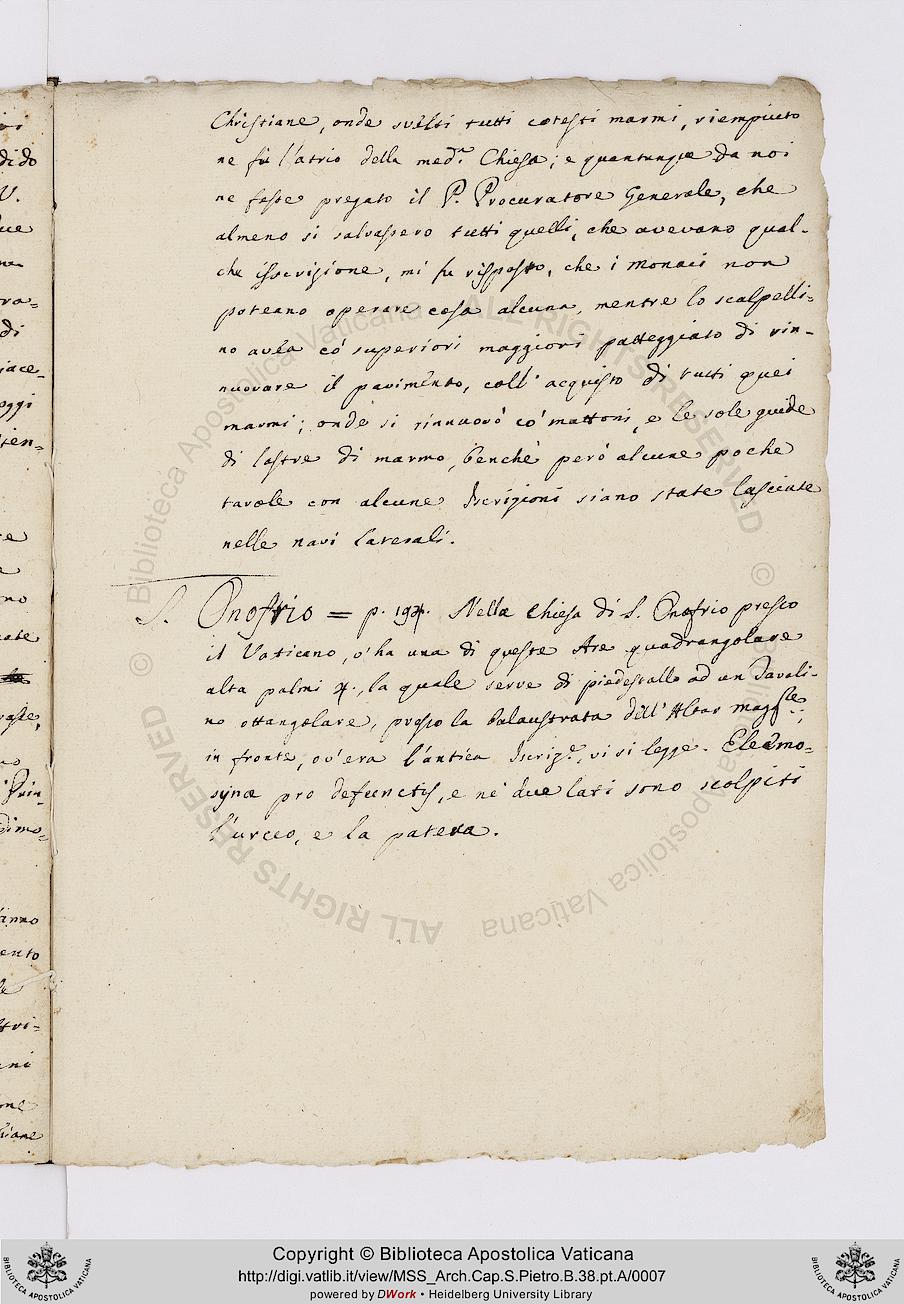 Christiane, onde svelti tutti cotesti marmi, riempiuto
ne fù l'atrio della med.ª Chiesa; e quantunque da noi
ne fosse pregato il P. Procuratore Generale, che
almeno si salvassero tutti quelli, che avevano qual-
che isscrizione, mi fu risposto, che i Monaci non
poteano operare cosa alcuna, mentre lo scalpelli-
no avea co' superiori maggiori patteggiato di rin-
nuovare il pavimento, coll' acquisto di tutti quei
marmi; onde si rinnuovò co' mattoni, e le sole guide
di lastre di marmo, benchè però alcune poche
tavole con alcune Iscrizioni siano state lasciate
nelle navi laterali.
S. Onofrio = p. Nella Chiesa di S. Onofrio presso
il Vaticano, v'ha una di queste Are quadrangolare
alta palmi la quale serve di piedestallo ad un Tavoli-
no ottangolare, presso la balaustrata dell'Altar
in fronte, ov'era l'antica Iscriz.e, vi si legge. Eleemo-
synæ pro defunctis, e ne' due lati sono scolpiti
l'urceo, e la patera.
ALL RIGHTS RESERVED © Biblioteca Apostolica Vaticana
ALL RIGHTS RESERVED © Biblioteca Apostolica Vaticana
Copyright © Biblioteca Apostolica Vaticana
http://digi.vatlib.it/view/MSS_Arch.Cap.S.Pietro.B.38.pt.A/0007
powered by DWork • Heidelberg University Library
BIBLIOTECA APOSTOLICA VATICANA
BIBLIOTECA APOSTOLICA VATICANA